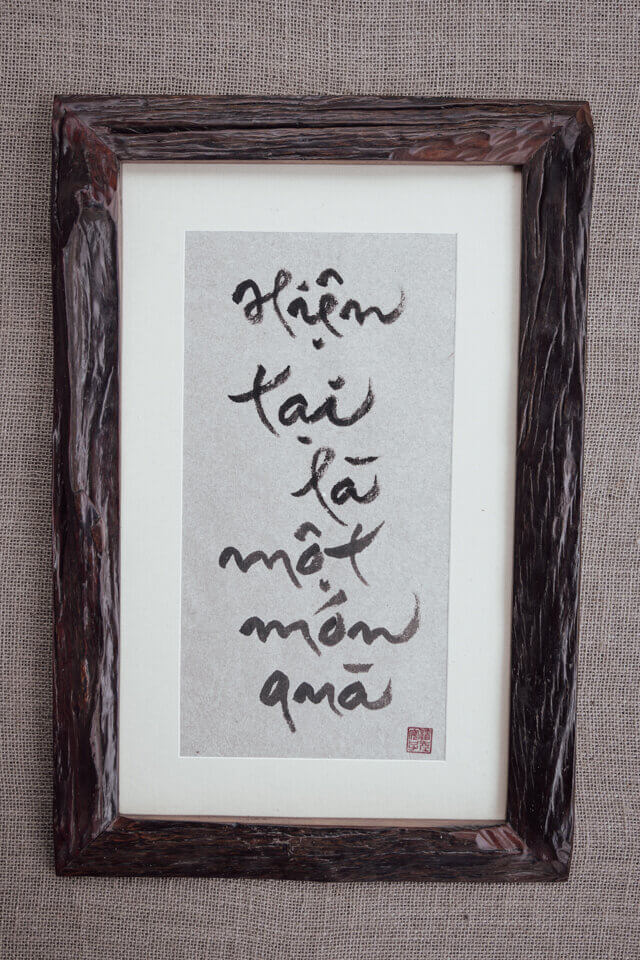 Hiện
tại
là
một
món
quà